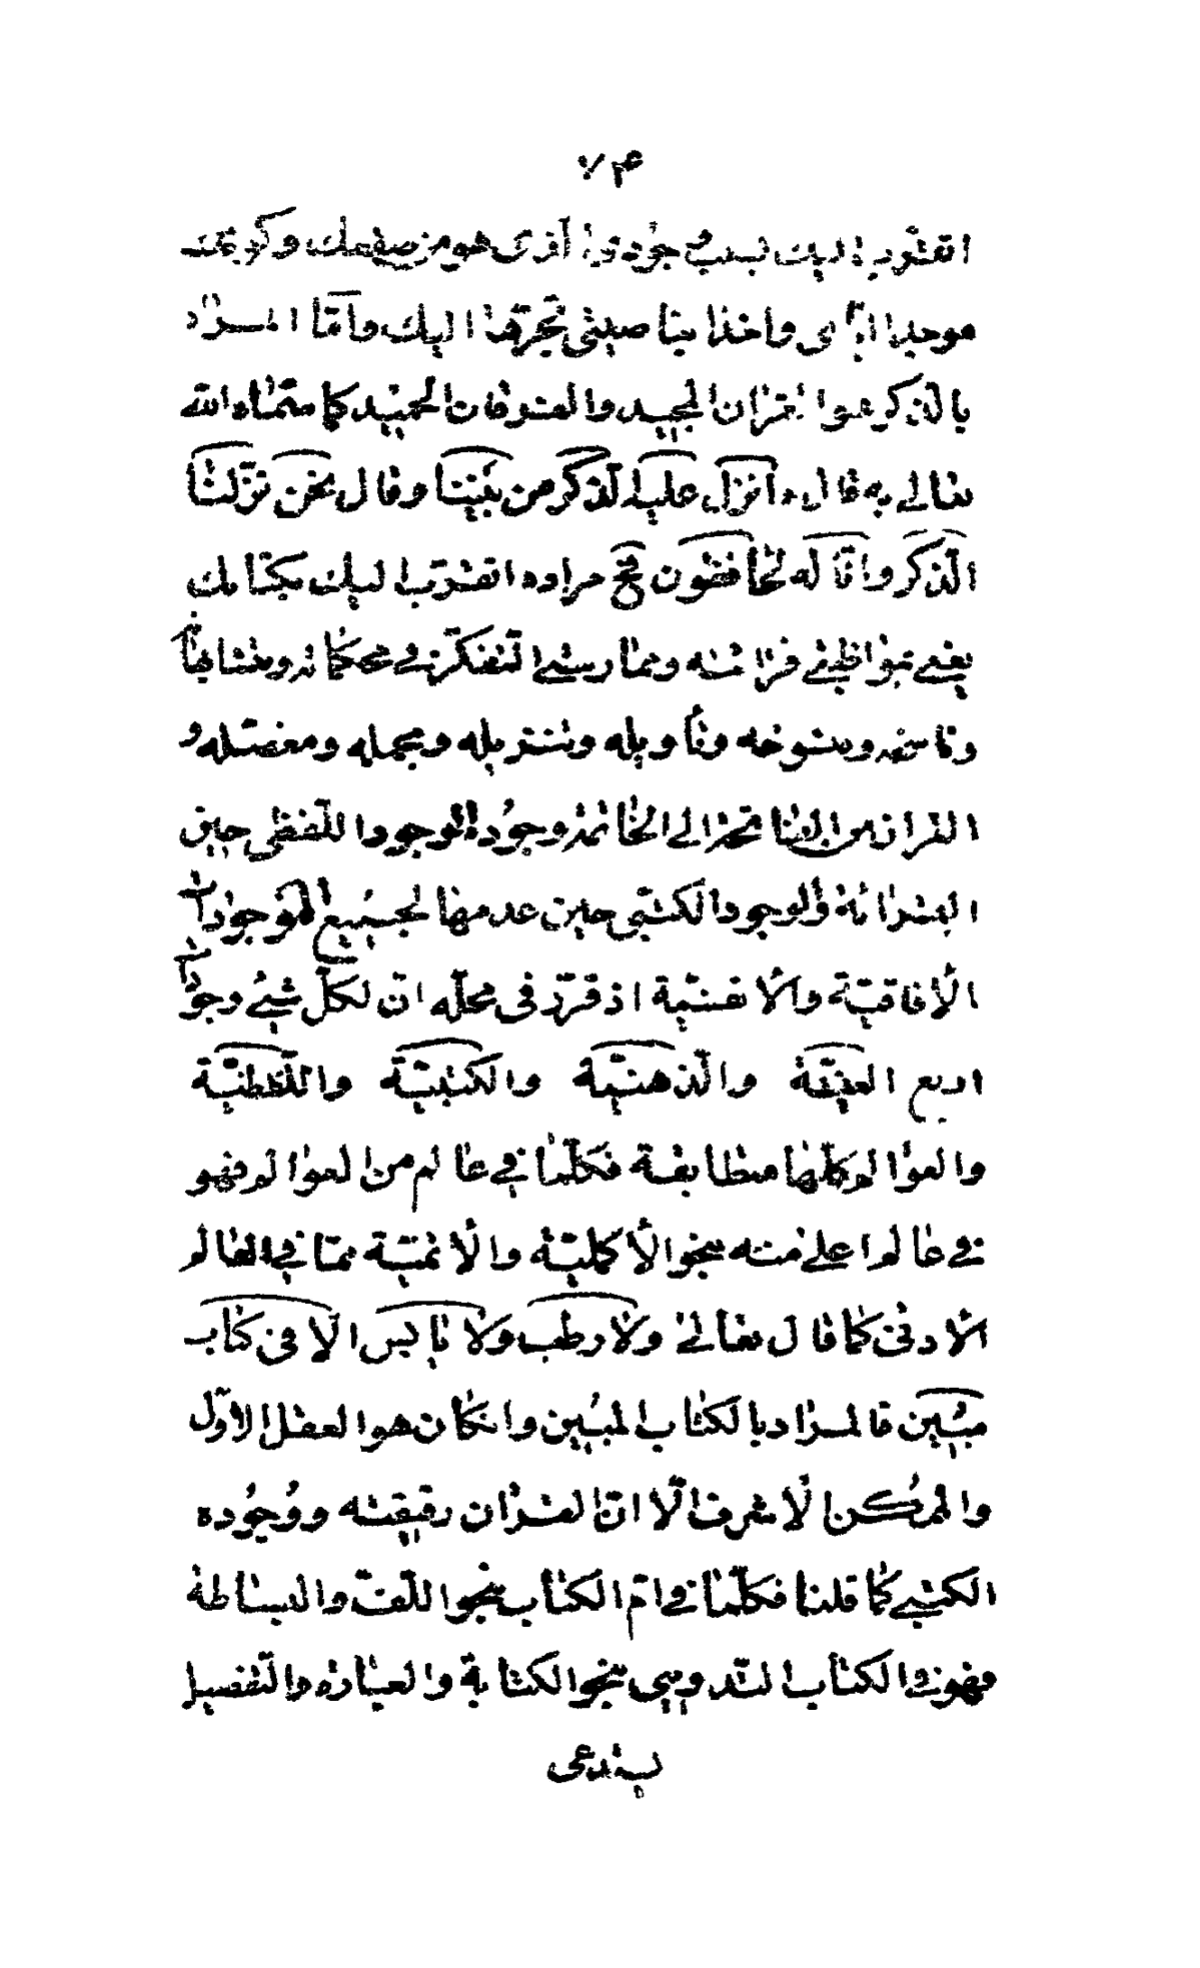 ٧۴
اتقرّب اليك بسبب جوده اذ هو من صفتك وكونه
موحدا اياى واخذا بناصيتى تجرّها اليك وامّا المراد
بالذكر هو القران المجيد والفرقان الحميد كما سمّاه الله
تعالى به قال ءانزل عليه الذكر من بيننا وقال نحن نزّلنا
الذّكر وانّا له لحافظون فح مراده اتقرّب اليك بكتابك
يعنى بمواظبة قرائته وممارسة التفكّر فى محكماته ومتشابهاته
وناسخه ومنسوخه وتأويله وتنزيله ومجمله ومفصّله و
القران من الفاتحة الى الخاتمة وجوده الوجود اللّفظى حين
القرائة والوجود الكتبى حين عدمها لجميع الموجودات
الأفاقيّة والانفسيّة اذ قرّر فى محلّه انّ لكلّ شىء وجودات
اربع العينيّة والذّهنيّة والكتبيّة واللّفظيّة
والعوالم كلّها متطابقة فكلّما فى عالم من العوالم فهو
فى عالم اعلى منه بنحو الأكمليّة والأتميّة ممّا فى العالم
الادنى كما قال تعالى ولا رطب ولا يابس الّا فى كتاب
مبين فالمراد بالكتاب المبين وانكان هو العقل الاوّل
والممكن الأشرف الّا انّ القران رقيقته ووجوده
الكتبى كما قلنا فكلّما فى امّ الكتاب بنحو اللّف والبساطة
فهو فى الكتاب التدوينى بنحو الكتابة والعبارة والتفصيل
يستدعى